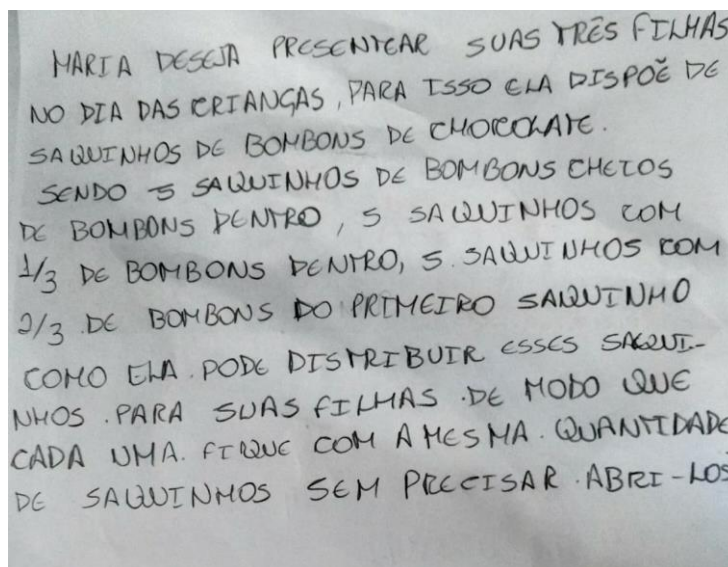 MARIA DESEJA PRESENTEAR SUAS TRÊS FILHAS
NO DIA DAS CRIANÇAS, PARA ISSO ELA DISPOÊ DE
SAQUINHOS DE BOMBONS DE CHOCOLATE.
SENDO 5 SAQUINHOS DE BOMBONS CHEIOS
DE BOMBONS DENTRO, 5 SAQUINHOS COM
1/3 DE BOMBONS DENTRO, 5. SAQUINHOS COM
2/3 DE BOMBONS DO PRIMEIRO SAQUINHO
COMO ELA. PODE DISTRIBUIR ESSES SAQUI-
NHOS. PARA SUAS FILHAS. DE MODO QUE
CADA UMA. FIQUE COM A MESMA. QUANTIDADE
DE SAQUINHOS SEM PRECISAR. ABRI-LOS